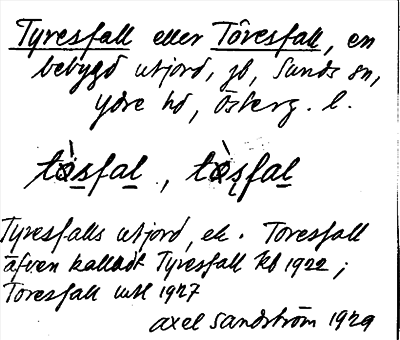 Tyresfall eller Töresfall, en
bebygd utjord, jb, Sunds sn,
Ydre hd, Österg. l.
tò̤sfal, tò̤sfal
Tyresfalls utjord, ek. Toresfall
äfven kalladt Tyresfall kb 1922;
Toresfall utl 1927
Axel Sandström 1929